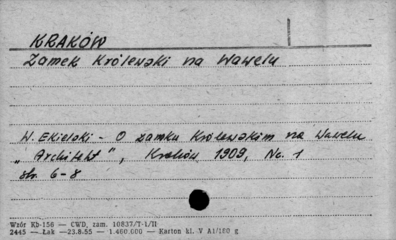 KRAKÓW
Zamek Królewski na Wawelu
W. Ekielski - O zamku Królewskim na Wawelu
„Architekt", Kraków 1909, Nr. 1
str. 6-8
Wzór Kb-156 — CWD, zam. 10837/T-1/II
2445 — Łak —23.8.55 — 1.460.000 — Karton kl. V A1/180 g